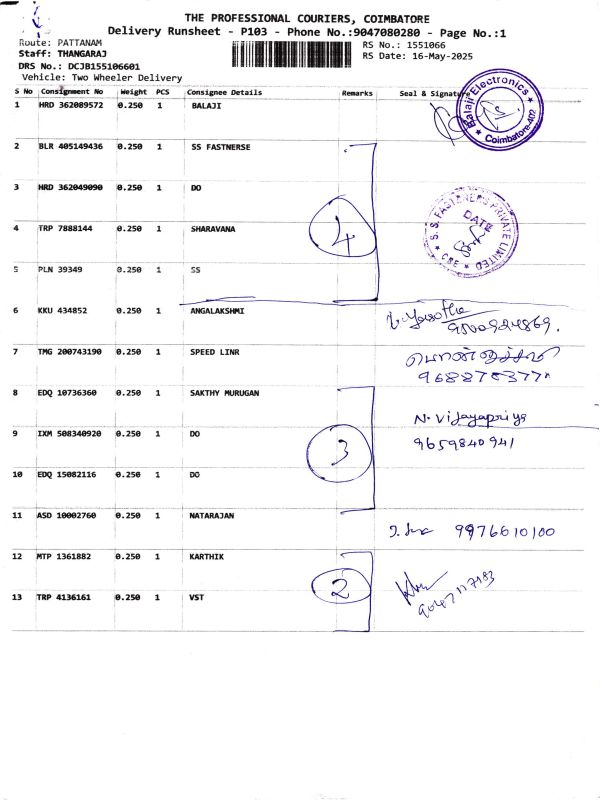 THE PROFESSIONAL COURIERS, COIMBATORE
Delivery Runsheet - P103 - Phone No.:9047080280 - Page No.:1
Route: PATTANAM
RS No.: 1551066
Staff: THANGARAJ
RS Date: 16-May-2025
DRS No.: DCJB155106601
Vehicle: Two Wheeler Delivery
S No Consignment No Weight PCS Consignee Details Remarks Seal & Signature
1 HRD 362089572 0.250 1 BALAJI
Balaji Electronics
Coimbatore-402
2 BLR 405149436 0.250 1 SS FASTNERSE
3 HRD 362049090 0.250 1 DO
4 TRP 7888144 0.250 1 SHARAVANA
4
S.S. FASTENERS PRIVATE LIMITED
DATE
CBE
5 PLN 39349 0.250 1 SS
6 KKU 434852 0.250 1 ANGALAKSHMI
7 TMG 200743190 0.250 1 SPEED LINR
8 EDQ 10736360 0.250 1 SAKTHY MURUGAN
N. Vijayapriya
9 IXM 508340920 0.250 1 DO
3
9659840941
10 EDQ 15082116 0.250 1 DO
11 ASD 10002760 0.250 1 NATARAJAN
9976610100
12 MTP 1361882 0.250 1 KARTHIK
2
9047117183
13 TRP 4136161 0.250 1 VST